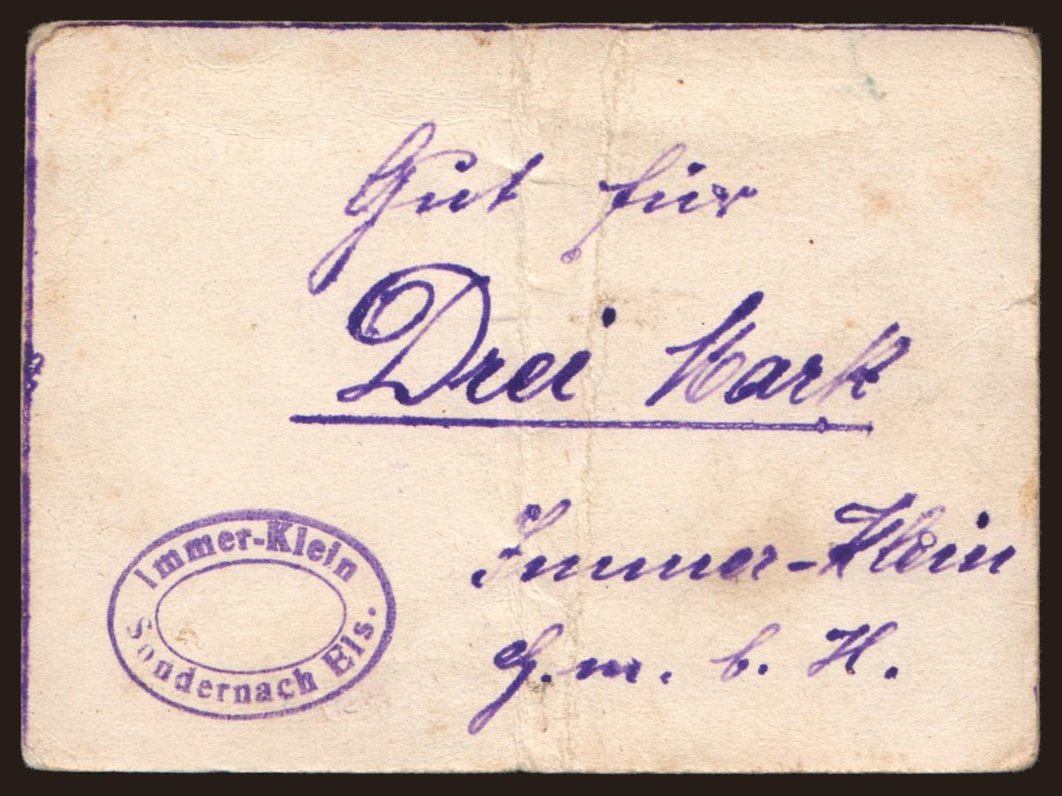 Gut für
Drei Mark
Immer-Klein
G.m.b.H.
Immer-Klein
Sondernach Els.